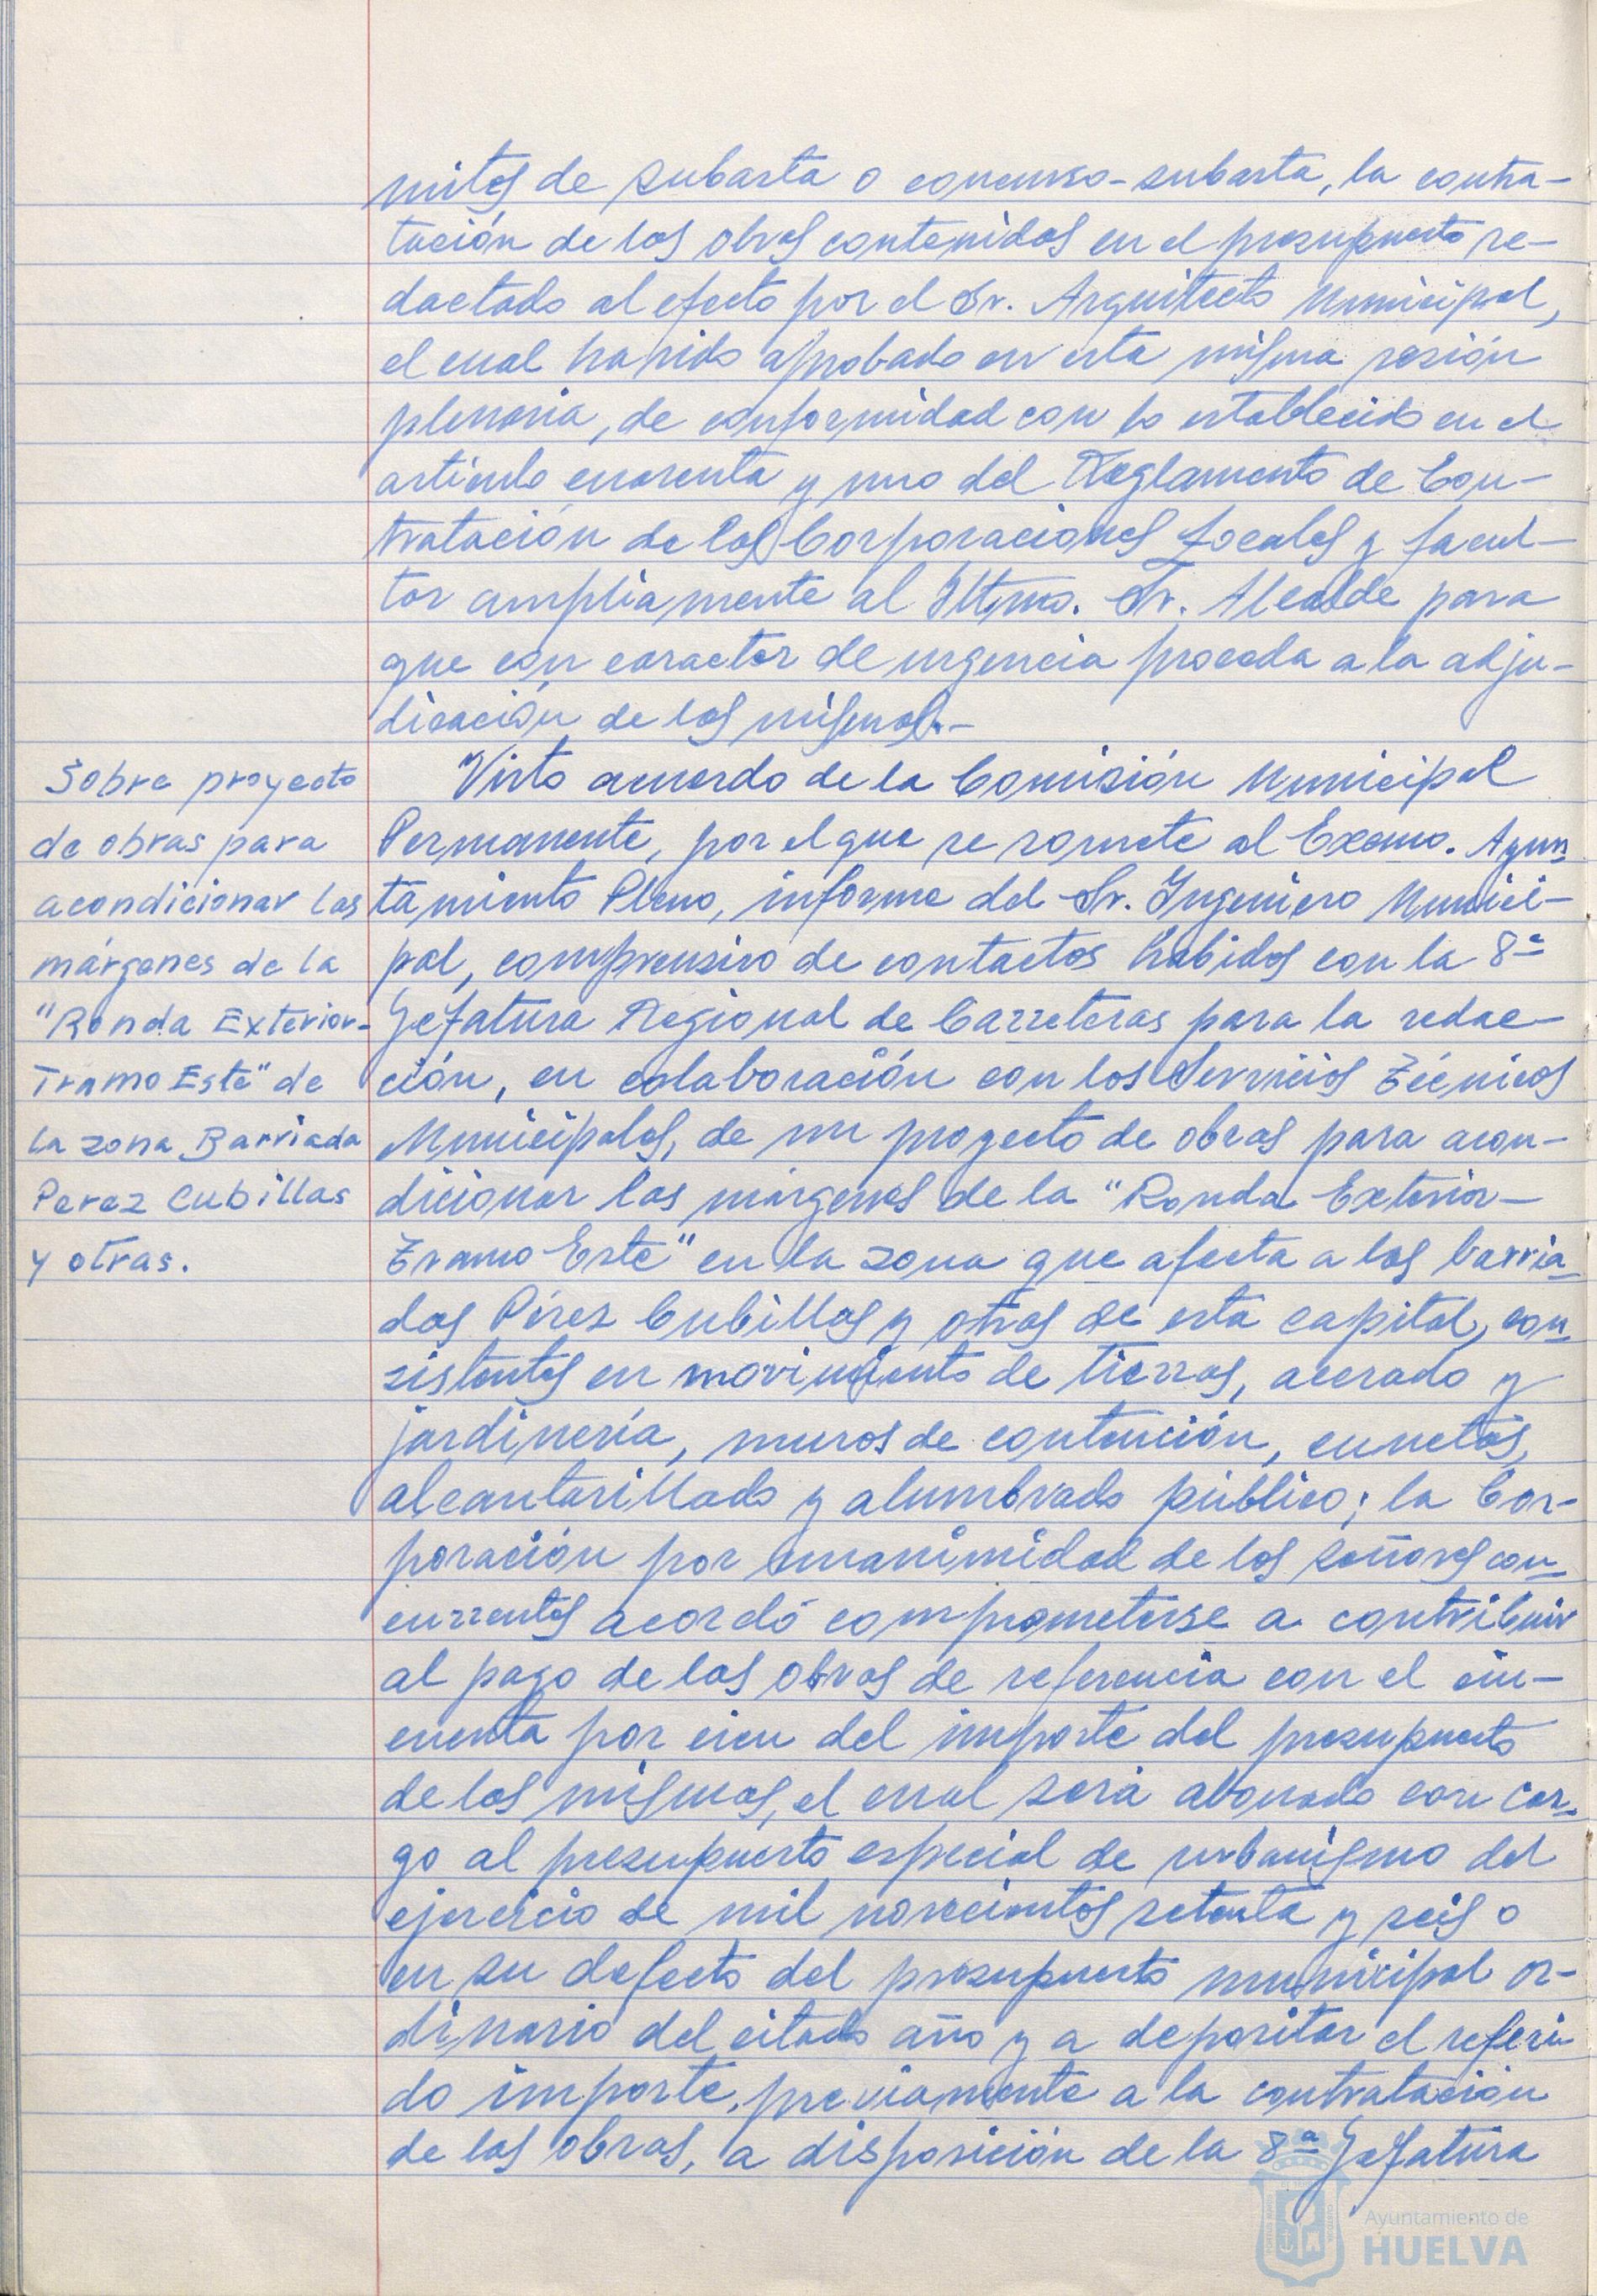 mites de subasta o concurso-subasta, la contra-
tación de las obras contenidas en el presupuesto re-
dactado al efecto por el Sr. Arquitecto Municipal,
el cual ha sido aprobado en esta misma sesión
plenaria, de conformidad con lo establecido en el
artículo cuarenta y uno del Reglamento de Con-
tratación de las Corporaciones Locales y facul-
tar ampliamente al Iltmo. Sr. Alcalde para
que con caracter de urgencia proceda a la adju-
dicación de las mismas.-
Sobre proyecto
de obras para
acondicionar las
márgenes de la
"Ronda Exterior-
Tramo Este" de
la zona Barriada
Perez Cubillas
y otras.
Visto acuerdo de la Comisión Municipal
Permanente, por el que se somete al Excmo. Ayun-
tamiento Pleno, informe del Sr. Ingeniero Munici-
pal, comprensivo de contactos habidos con la 8ª
Jefatura Regional de Carreteras para la redac-
ción, en colaboración con los Servicios Técnicos
Municipales, de un proyecto de obras para acon-
dicionar las márgenes de la "Ronda Exterior-
Tramo Este" en la zona que afecta a las barria-
das Pérez Cubillas y otras de esta capital, con-
sistentes en movimiento de tierras, acerado y
jardinería, muros de contención, cunetas,
alcantarillado y alumbrado público; la Cor-
poración por unanimidad de los señores con-
currentes acordó comprometerse a contribuir
al pago de las obras de referencia con el cin-
cuenta por cien del importe del presupuesto
de las mismas, el cual será abonado con car-
go al presupuesto especial de urbanismo del
ejercicio de mil novecientos setenta y seis o
en su defecto del presupuesto municipal or-
dinario del citado año y a depositar el referi-
do importe, previamente a la contratación
de las obras, a disposición de la 8ª Jefatura
Ayuntamiento de
HUELVA